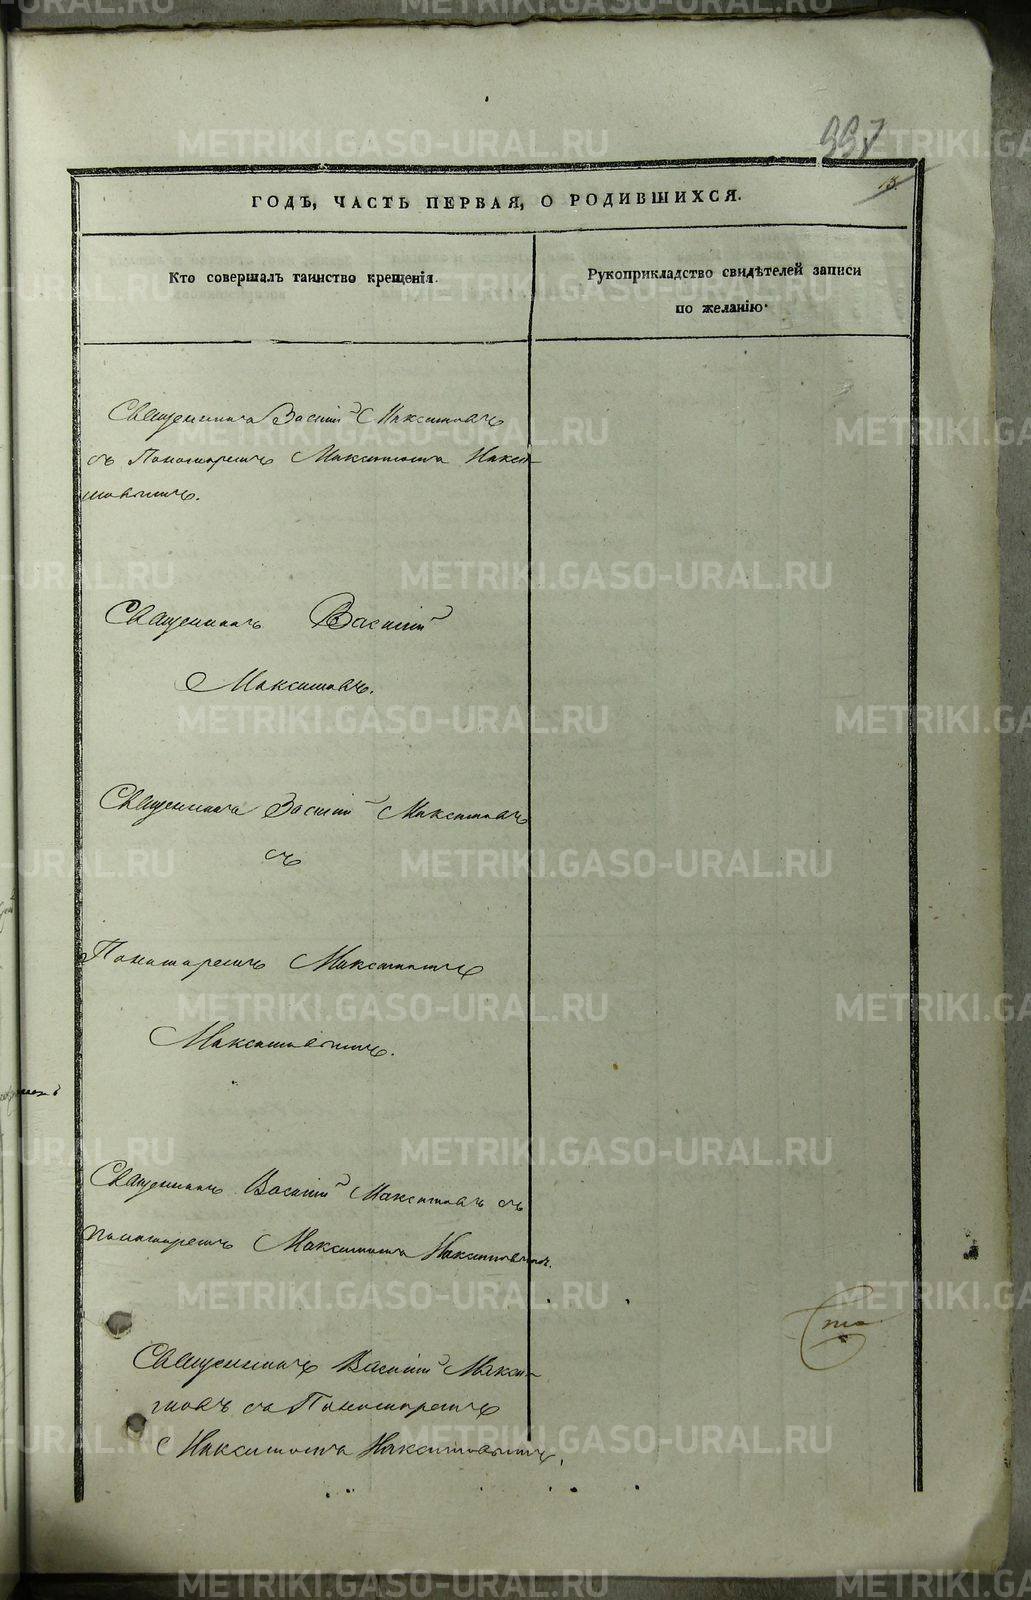 337
13.
ГОДЪ, ЧАСТЬ ПЕРВАЯ, О РОДИВШИХСЯ.
Кто совершалъ таинство крещенія.
Рукоприкладство свидѣтелей записи
по желанію.
Священникъ Василій Максимовъ
съ Пономаремъ Максимомъ Макси-
мовымъ.
Священникъ Василій
Максимовъ.
Священникъ Василій Максимовъ
съ
Пономаремъ Максимомъ
Максимовымъ.
Священникъ Василій Максимовъ съ
Пономаремъ Максимомъ Максимовымъ.
Священникъ Василій Макси-
мовъ съ Пономаремъ
Максимомъ Максимовымъ.
METRIKI.GASO-URAL.RU